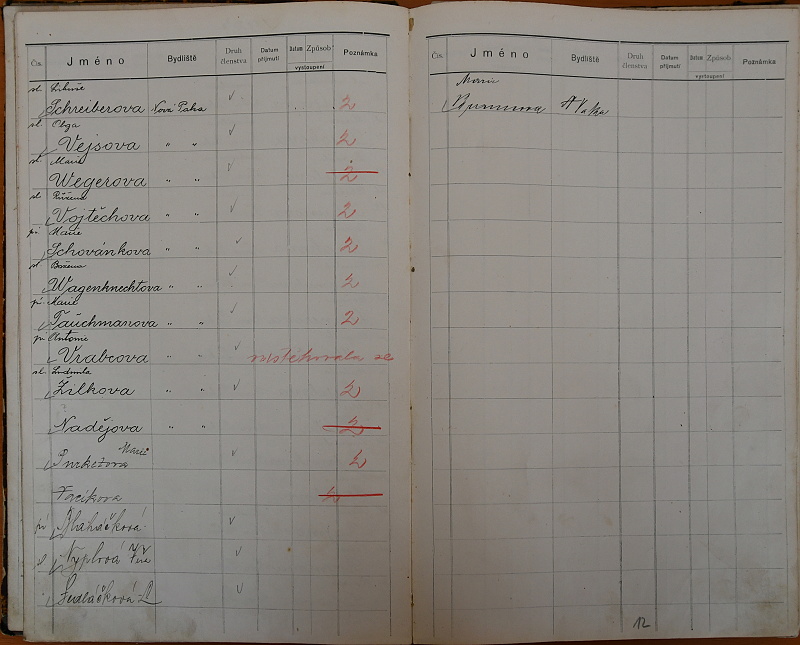 Čís. Jméno Bydliště Druh členstva Datum přijmutí Datum Způsob vystoupení Poznámka
sl. Libuše
Schreiberova Nová Paka 2
sl. Olga
Vejsova " " 2
sl. Marie
Wegerova " " 2
sl. Růžena
Vojtěchova " " 2
pí. Marie
Schovánkova " " 2
sl. Božena
Wagenknechtova " " 2
pí. Marie
Tauchmanova " " 2
pí. Antonie
Vrabcova " " odstěhovala se
sl. Ludmila
Zilkova " " 2
Nadějova " " 2
Purkertova Marie 2
2
pí
sl
Sedláčková L
Čís. Jméno Bydliště Druh členstva Datum přijmutí Datum Způsob vystoupení Poznámka
Marie
N Paka
12